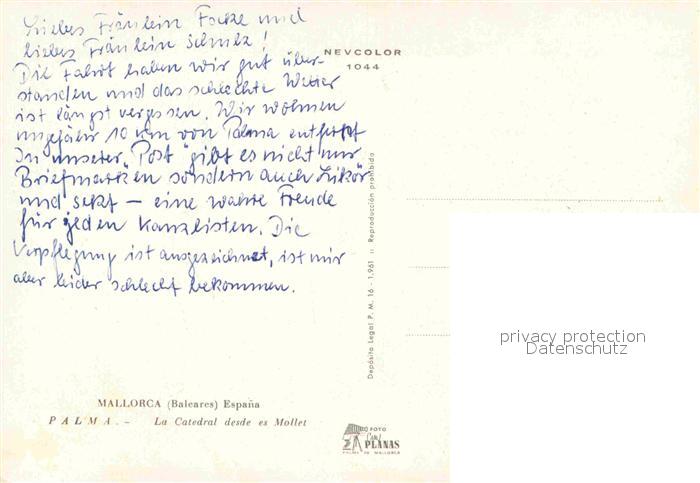 Liebes Fräulein Focke und
liebes Fräulein Schulz!
Die Fahrt haben wir gut über-
standen und das schlechte Wetter
ist längst vergessen. Wir wohnen
ungefähr 10 km von Palma entfernt
In unserer "Post" gibt es nicht nur
Briefmarken sondern auch Likör
und Sekt – eine wahre Freude
für jeden Kanzlisten. Die
Verpflegung ist ausgezeichnet, ist mir
aber leider schlecht bekommen.
NEVCOLOR
1044
Depósito Legal P. M. 16 - 1.961 :: Reproducción prohibida
privacy protection
Datenschutz
MALLORCA (Baleares) España
PALMA. - La Catedral desde es Mollet
FOTO
Casa
PLANAS
PALMA DE MALLORCA